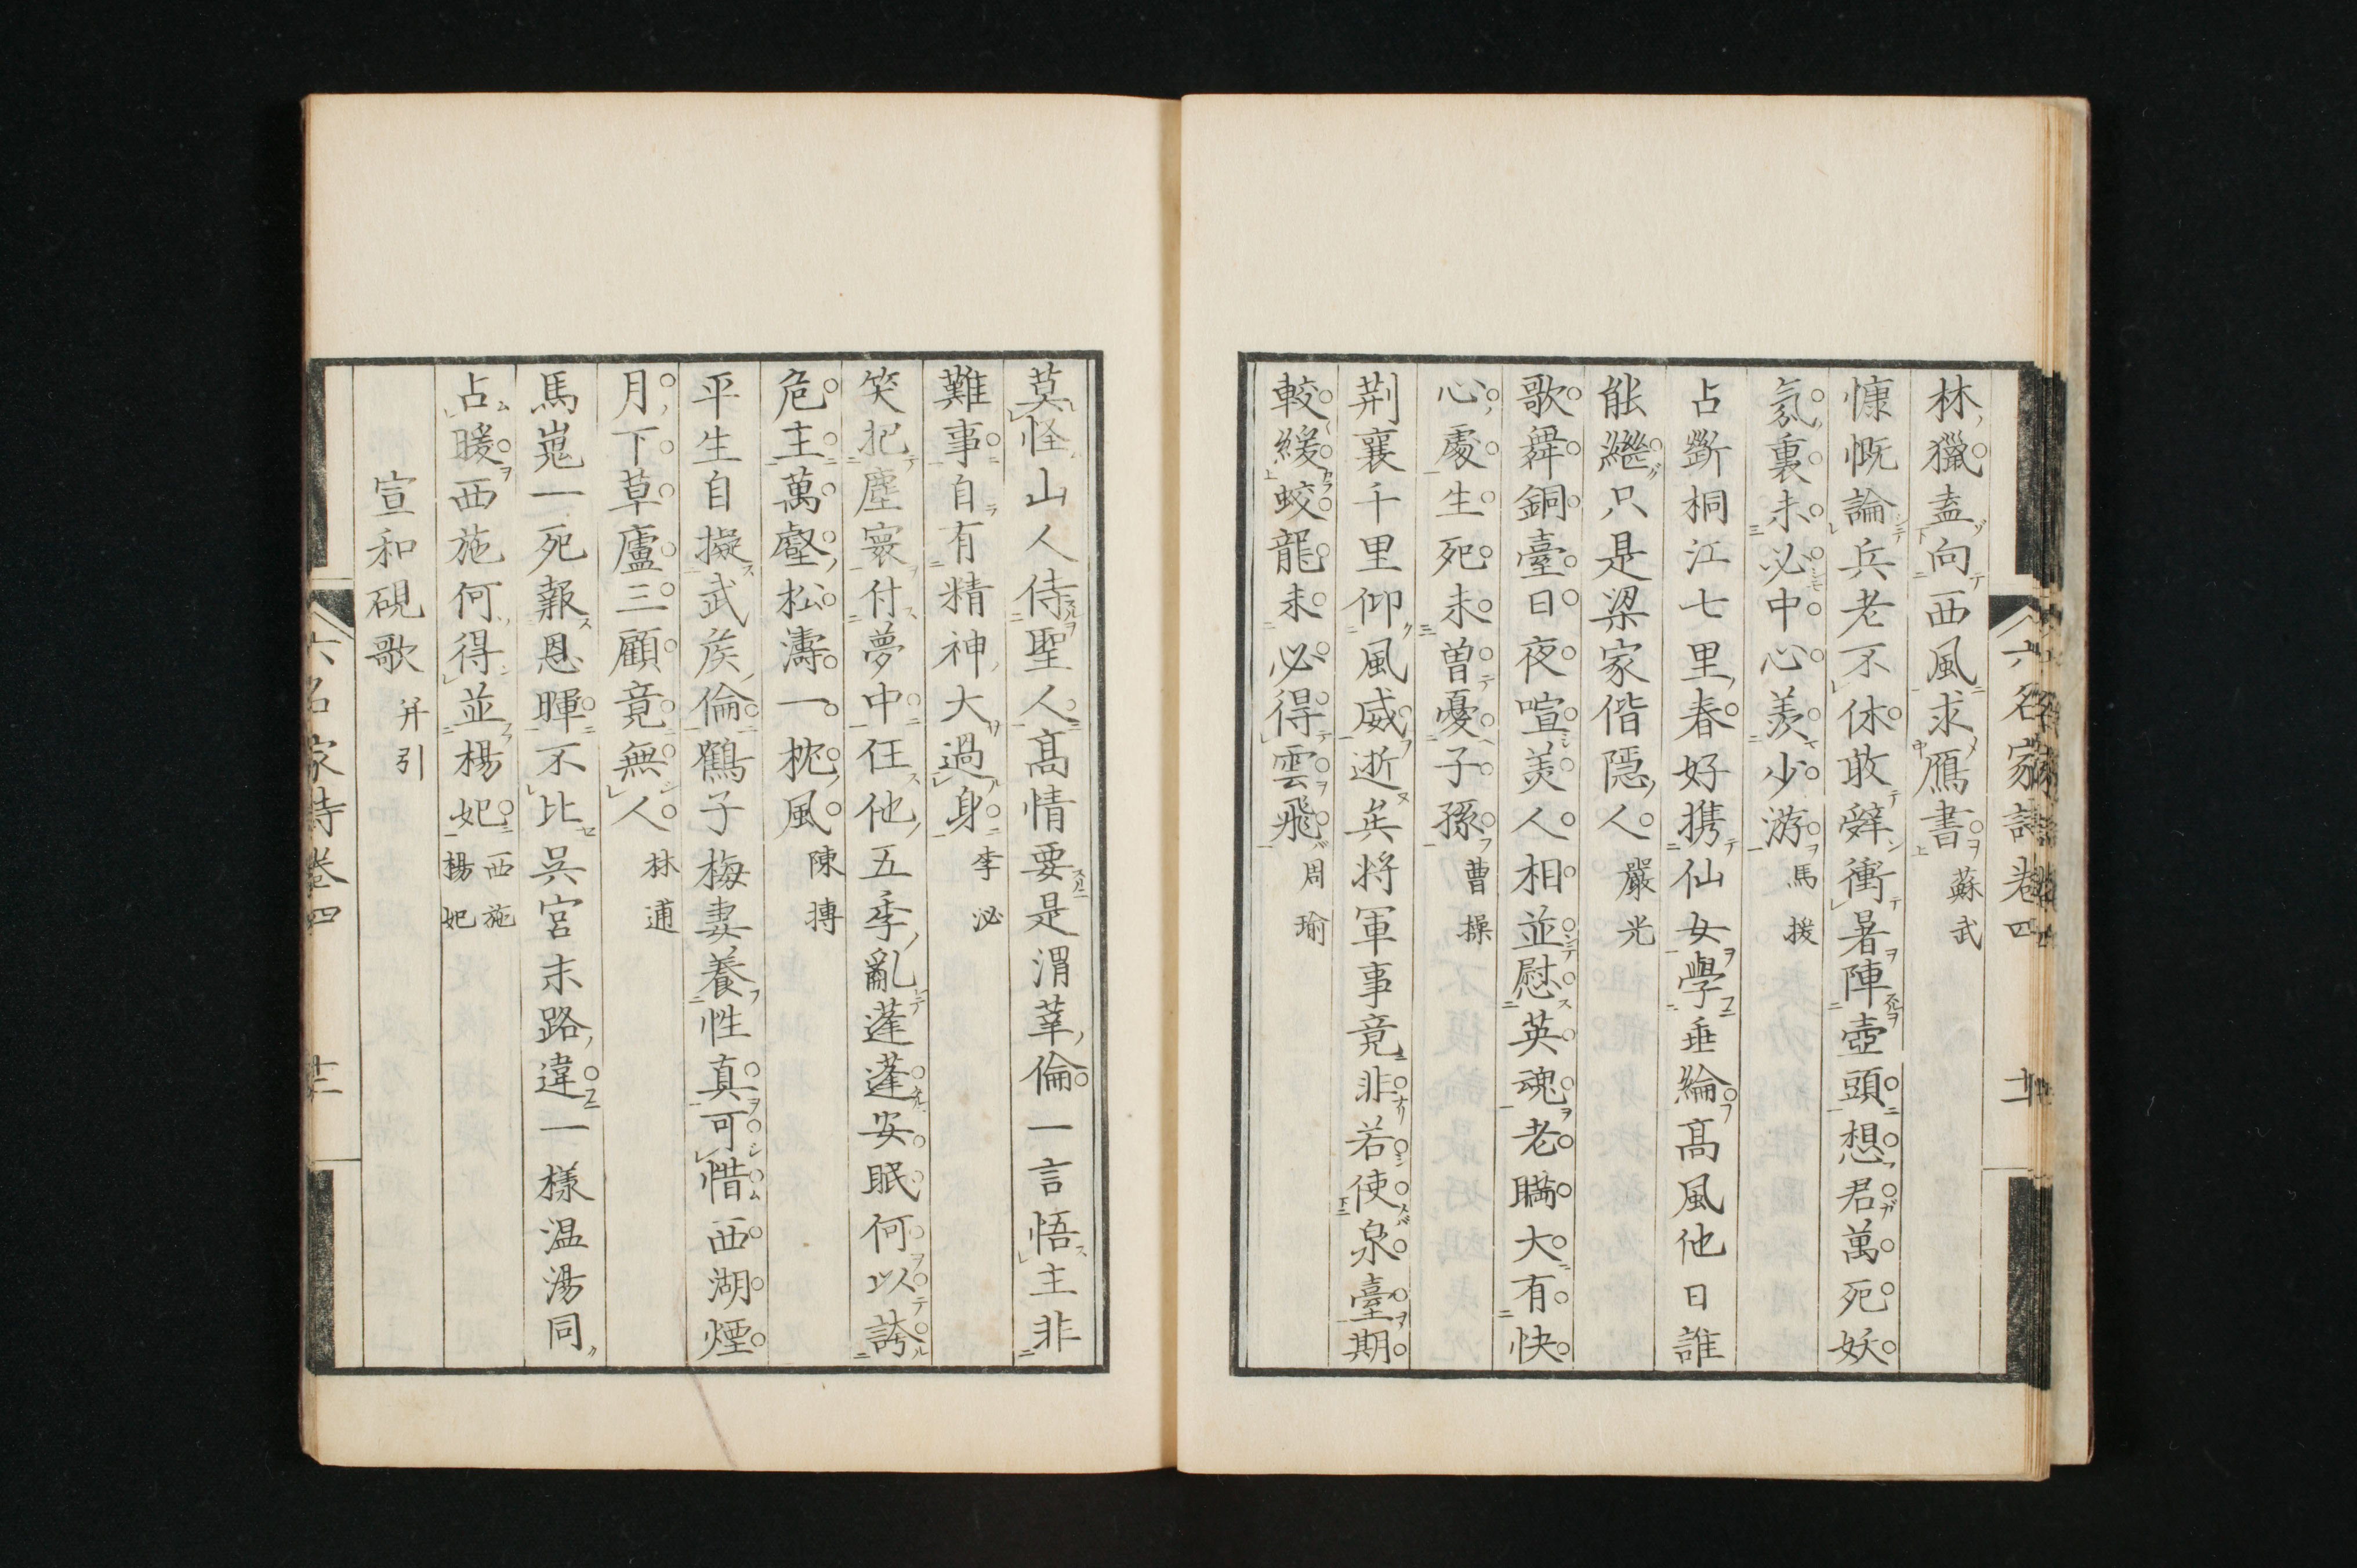 林獵盍向西風求鴈書 蘇武
慷慨論兵老不休敢辭衝暑陣壺頭想君萬死妖
氛裏未必中心羨少游 馬援
占斷桐江七里春好携仙女學垂綸高風他日誰
能繼只是梁家偕隱人 嚴光
歌舞銅臺日夜喧美人相並慰英魂老瞞大有快
心處生死未曽憂子孫 曹操
荆襄千里仰風威逝矣将軍事竟非若使泉臺期
較緩蛟龍未必得雲飛 周瑜
莫怪山人侍聖人髙情要是渭莘倫一言悟主非
難事自有精神大過身 李泌
笑把塵寰付夢中任他五季亂蓬蓬安眠何以誇
危主萬壑松濤一枕風 陳摶
平生自擬武矦倫鶴子梅妻養性真可惜西湖煙
月下草廬三顧竟無人 林逋
馬嵬一死報恩暉不比呉宮末路違一樣温湯同
占暖西施何得並楊妃 西施 楊妃
宣和硯歌 并引
六名家詩卷四